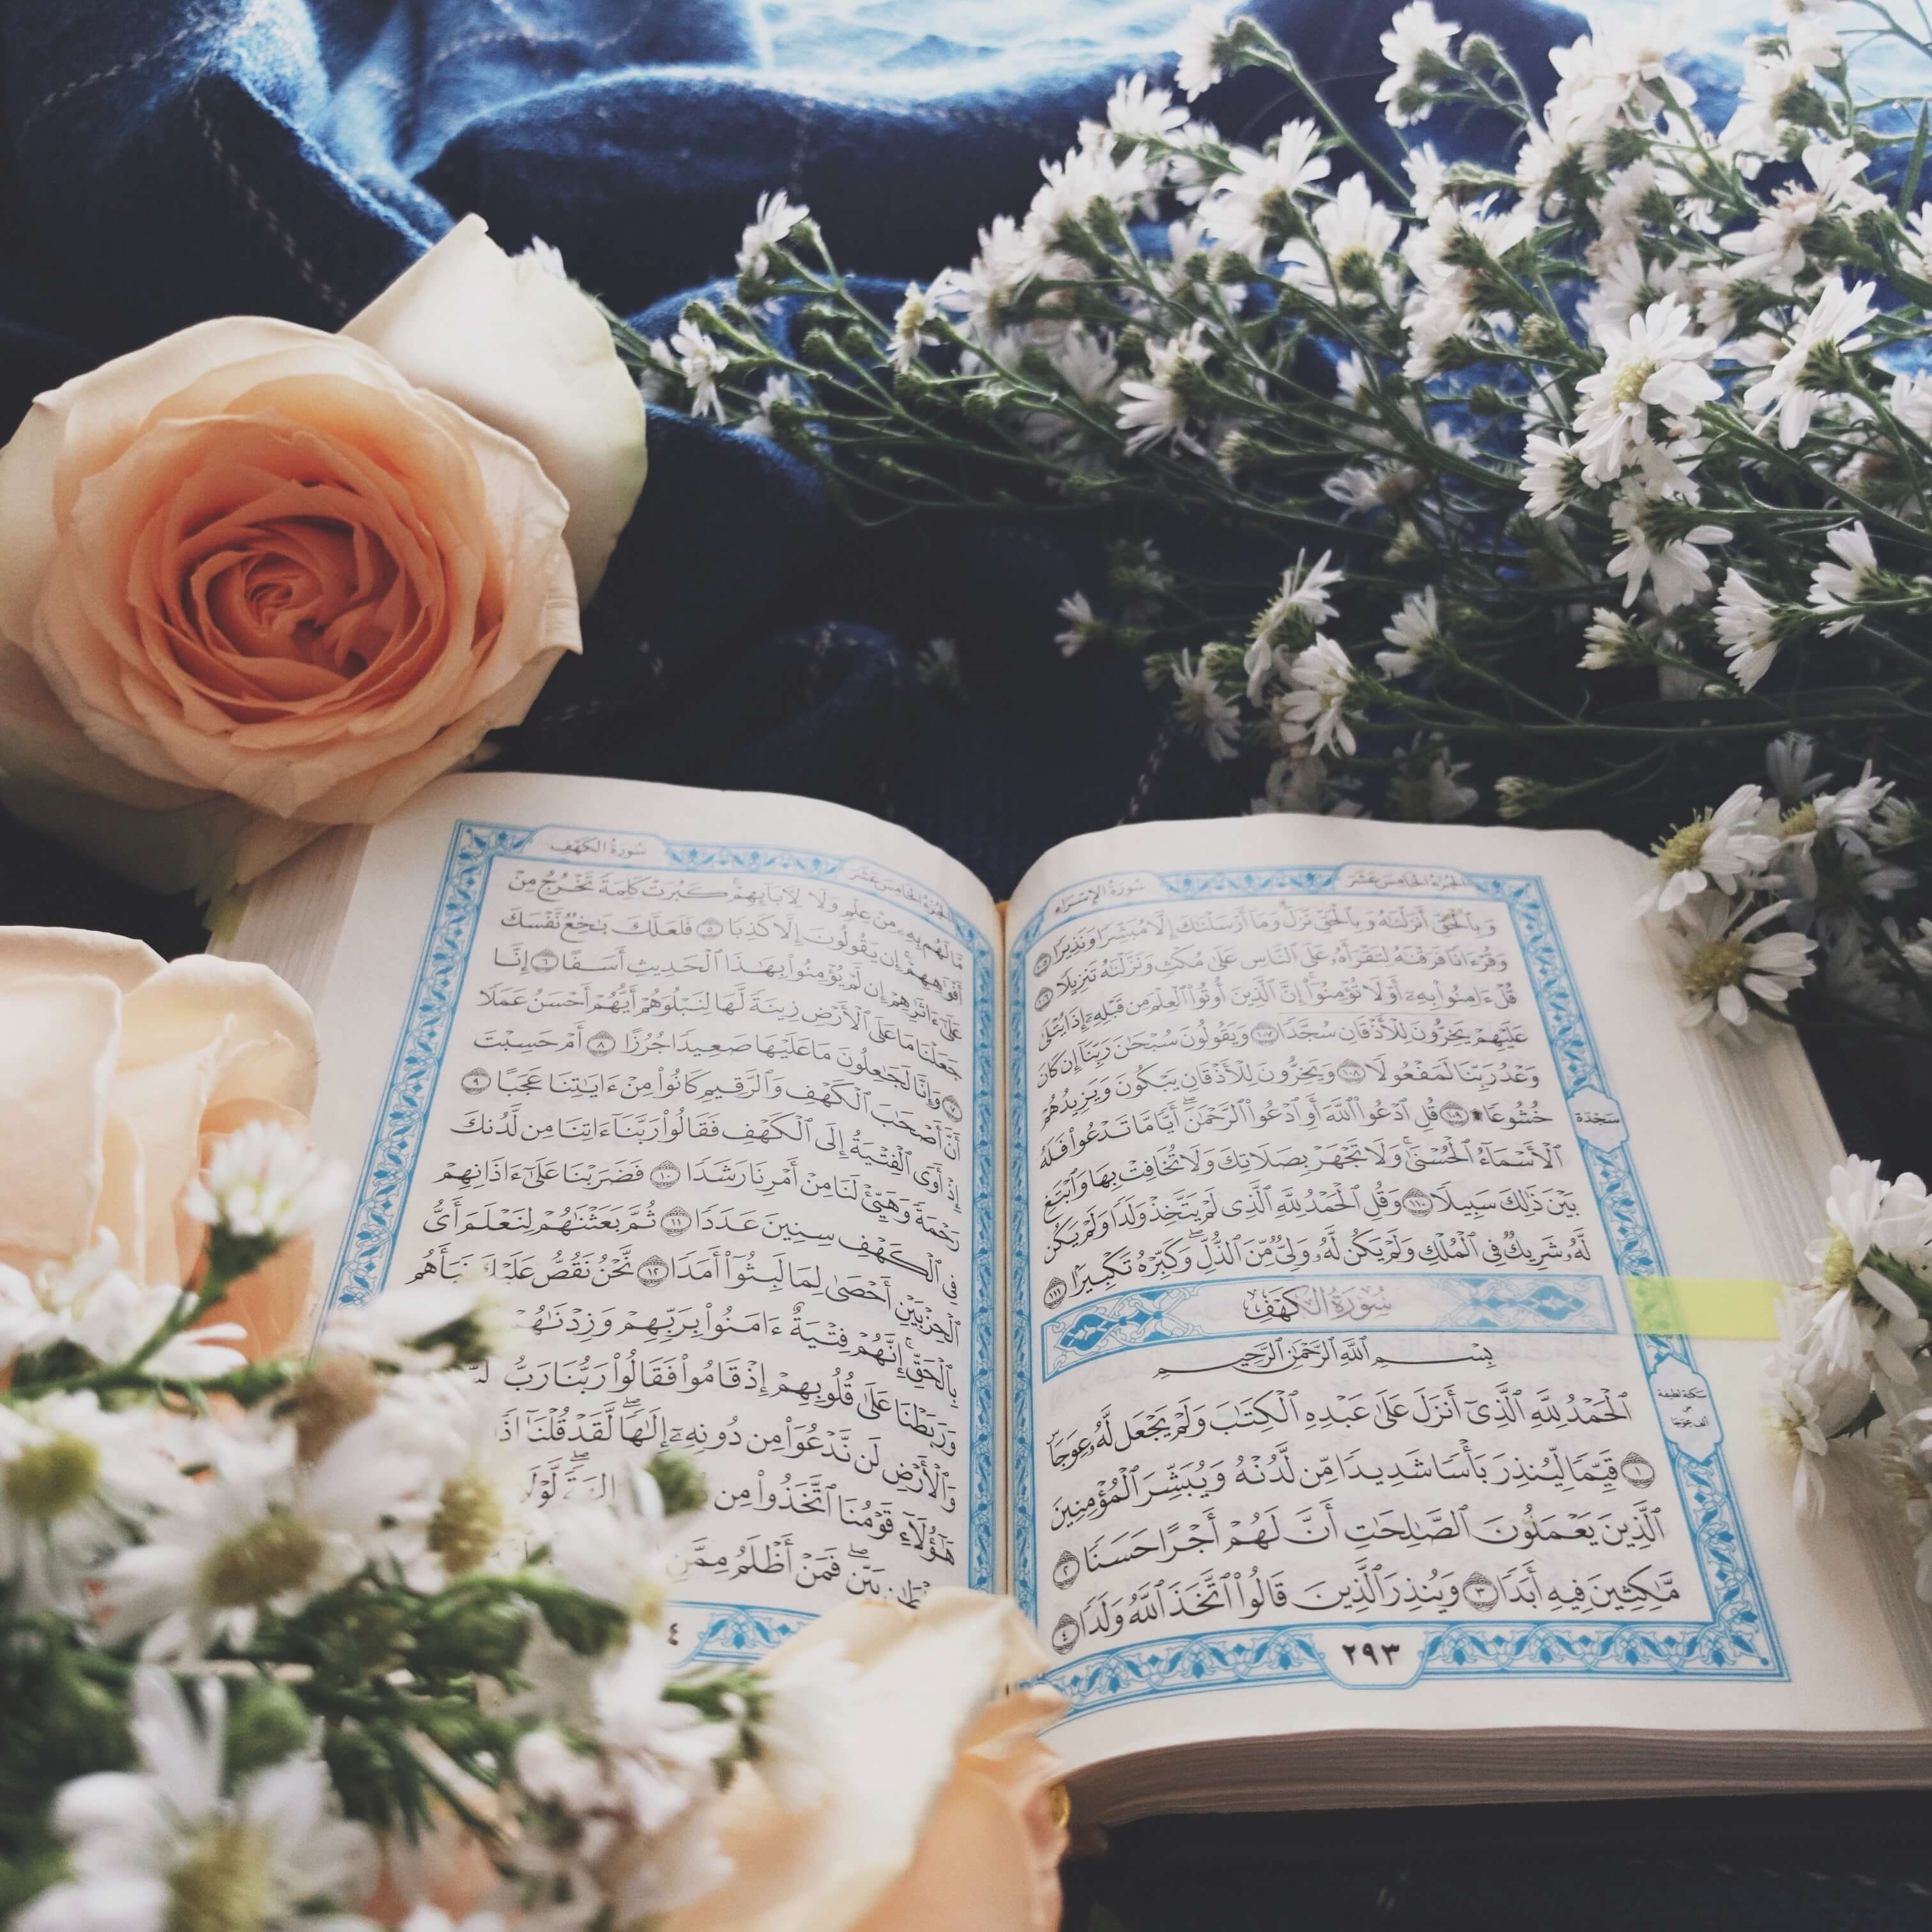 سُورَةُ الإِسْرَاءِ
الجُزْءُ الخَامِسَ عَشَرَ
وَبِٱلْحَقِّ أَنزَلْنَٰهُ وَبِٱلْحَقِّ نَزَلَ ۗ وَمَآ أَرْسَلْنَٰكَ إِلَّا مُبَشِّرًا وَنَذِيرًا ١٠٥
وَقُرْءَانًا فَرَقْنَٰهُ لِتَقْرَأَهُۥ عَلَى ٱلنَّاسِ عَلَىٰ مُكْثٍ وَنَزَّلْنَٰهُ تَنزِيلًا ١٠٦
قُلْ ءَامِنُوا۟ بِهِۦٓ أَوْ لَا تُؤْمِنُوٓا۟ ۚ إِنَّ ٱلَّذِينَ أُوتُوا۟ ٱلْعِلْمَ مِن قَبْلِهِۦٓ إِذَا يُتْلَىٰ
عَلَيْهِمْ يَخِرُّونَ لِلْأَذْقَانِ سُجَّدًا ١٠٧ وَيَقُولُونَ سُبْحَٰنَ رَبِّنَآ إِن كَانَ
وَعْدُ رَبِّنَا لَمَفْعُولًا ١٠٨ وَيَخِرُّونَ لِلْأَذْقَانِ يَبْكُونَ وَيَزِيدُهُمْ
خُشُوعًا ۩ ١٠٩ قُلِ ٱدْعُوا۟ ٱللَّهَ أَوِ ٱدْعُوا۟ ٱلرَّحْمَٰنَ ۖ أَيًّا مَّا تَدْعُوا۟ فَلَهُ
سَجْدَة
ٱلْأَسْمَآءُ ٱلْحُسْنَىٰ ۚ وَلَا تَجْهَرْ بِصَلَاتِكَ وَلَا تُخَافِتْ بِهَا وَٱبْتَغِ
بَيْنَ ذَٰلِكَ سَبِيلًا ١١٠ وَقُلِ ٱلْحَمْدُ لِلَّهِ ٱلَّذِى لَمْ يَتَّخِذْ وَلَدًا وَلَمْ يَكُن
لَّهُۥ شَرِيكٌ فِى ٱلْمُلْكِ وَلَمْ يَكُن لَّهُۥ وَلِىٌّ مِّنَ ٱلذُّلِّ ۖ وَكَبِّرْهُ تَكْبِيرًۢا ١١١
سُورَةُ الكَهْفِ
بِسْمِ ٱللَّهِ ٱلرَّحْمَٰنِ ٱلرَّحِيمِ
ٱلْحَمْدُ لِلَّهِ ٱلَّذِىٓ أَنزَلَ عَلَىٰ عَبْدِهِ ٱلْكِتَٰبَ وَلَمْ يَجْعَل لَّهُۥ عِوَجَا ۜ
١ قَيِّمًا لِّيُنذِرَ بَأْسًا شَدِيدًا مِّن لَّدُنْهُ وَيُبَشِّرَ ٱلْمُؤْمِنِينَ
ٱلَّذِينَ يَعْمَلُونَ ٱلصَّٰلِحَٰتِ أَنَّ لَهُمْ أَجْرًا حَسَنًا ٢
مَّٰكِثِينَ فِيهِ أَبَدًا ٣ وَيُنذِرَ ٱلَّذِينَ قَالُوا۟ ٱتَّخَذَ ٱللَّهُ وَلَدًا ٤
٢٩٣
الجُزْءُ الخَامِسَ عَشَرَ
سُورَةُ الكَهْفِ
مَّا لَهُم بِهِۦ مِنْ عِلْمٍ وَلَا لِءَابَآئِهِمْ ۚ كَبُرَتْ كَلِمَةً تَخْرُجُ مِنْ
أَفْوَٰهِهِمْ ۚ إِن يَقُولُونَ إِلَّا كَذِبًا ٥ فَلَعَلَّكَ بَٰخِعٌ نَّفْسَكَ
عَلَىٰٓ ءَاثَٰرِهِمْ إِن لَّمْ يُؤْمِنُوا۟ بِهَٰذَا ٱلْحَدِيثِ أَسَفًا ٦ إِنَّا
جَعَلْنَا مَا عَلَى ٱلْأَرْضِ زِينَةً لَّهَا لِنَبْلُوَهُمْ أَيُّهُمْ أَحْسَنُ عَمَلًا
٧ وَإِنَّا لَجَٰعِلُونَ مَا عَلَيْهَا صَعِيدًا جُرُزًا ٨ أَمْ حَسِبْتَ
أَنَّ أَصْحَٰبَ ٱلْكَهْفِ وَٱلرَّقِيمِ كَانُوا۟ مِنْ ءَايَٰتِنَا عَجَبًا ٩
إِذْ أَوَى ٱلْفِتْيَةُ إِلَى ٱلْكَهْفِ فَقَالُوا۟ رَبَّنَآ ءَاتِنَا مِن لَّدُنكَ
رَحْمَةً وَهَيِّئْ لَنَا مِنْ أَمْرِنَا رَشَدًا ١٠ فَضَرَبْنَا عَلَىٰٓ ءَاذَانِهِمْ
فِى ٱلْكَهْفِ سِنِينَ عَدَدًا ١١ ثُمَّ بَعَثْنَٰهُمْ لِنَعْلَمَ أَىُّ
ٱلْحِزْبَيْنِ أَحْصَىٰ لِمَا لَبِثُوٓا۟ أَمَدًا ١٢ نَّحْنُ نَقُصُّ عَلَيْكَ نَبَأَهُم
بِٱلْحَقِّ ۚ إِنَّهُمْ فِتْيَةٌ ءَامَنُوا۟ بِرَبِّهِمْ وَزِدْنَٰهُمْ
وَرَبَطْنَا عَلَىٰ قُلُوبِهِمْ إِذْ قَامُوا۟ فَقَالُوا۟ رَبُّنَا رَبُّ
وَٱلْأَرْضِ لَن نَّدْعُوَا۟ مِن دُونِهِۦٓ إِلَٰهًا ۖ لَّقَدْ قُلْنَآ إِذًا
هَٰٓؤُلَآءِ قَوْمُنَا ٱتَّخَذُوا۟ مِن
بَيِّنٍ ۖ فَمَنْ أَظْلَمُ مِمَّنِ